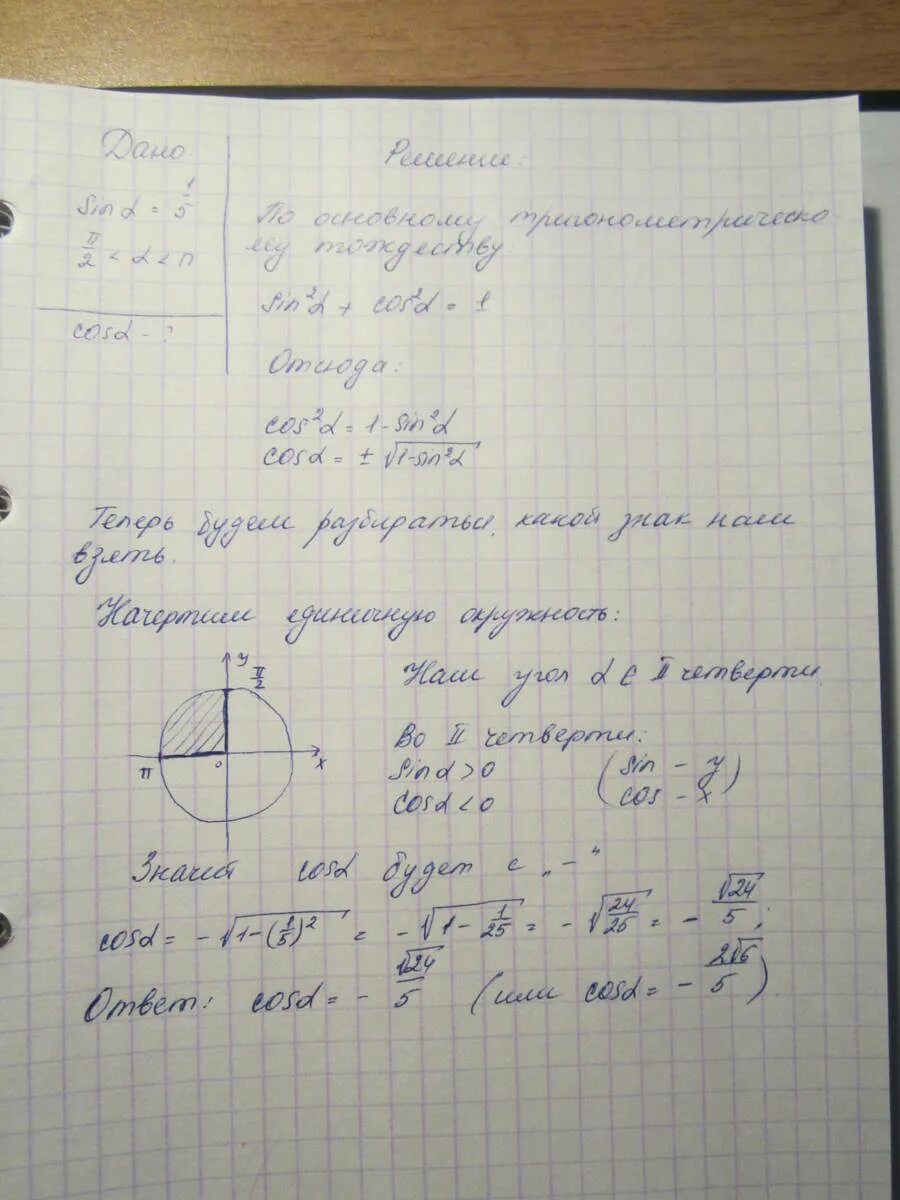 Дано
sin α = 1/5
π/2 < α < π
cos α - ?
Решение:
По основному тригонометрическо
му тождеству
sin²α + cos²α = 1
Отсюда:
cos²α = 1 - sin²α
cos α = ± √(1-sin²α)
Теперь будем разбираться, какой знак нам
взять.
Начертим единичную окружность:
y π/2
π 0 x
Наш угол α ∈ II четверти
Во II четверти:
sin α > 0 (sin - y)
cos α < 0 (cos - x)
Значит cos α будет с „-“
cos α = -√(1-(1/5)²) = -√(1 - 1/25) = -√(24/25) = - √24/5;
Ответ: cos α = - √24/5 (или cos α = - 2√6/5)